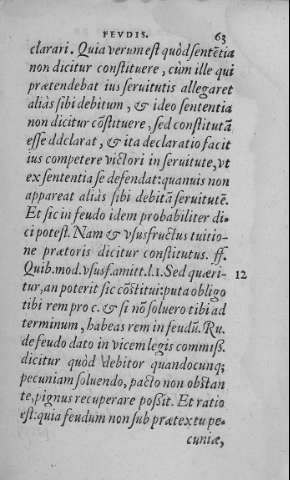 FEVDIS. 63
clarari. Quia verum est quòd sentētia
non dicitur constituere, cùm ille qui
prætendebat ius seruitutis allegaret
aliàs sibi debitum, & ideo sententia
non dicitur cōstituere, sed constitutā
esse ddclarat, & ita declaratio facit
ius competere victori in seruitute, vt
ex sententia se defendat: quanuis non
appareat aliàs sibi debitā seruitutē.
Et sic in feudo idem probabiliter di-
ci potest. Nam & vsusfructus tuitio-
ne prætoris dicitur constitutus. ff.
Quib. mod. vsusf. amitt. l. 1. Sed quæri- 12
tur, an poterit sic cōstitui: puta obligo
tibi rem pro c. & si nō soluero tibi ad
terminum, habeas rem in feudū. Ru.
de feudo dato in vicem legis commiss.
dicitur quòd debitor quandocunq;
pecuniam soluendo, pacto non obstan
te, pignus recuperare possit. Et ratio
est: quia feudum non sub prætextu pe-
cuniæ,